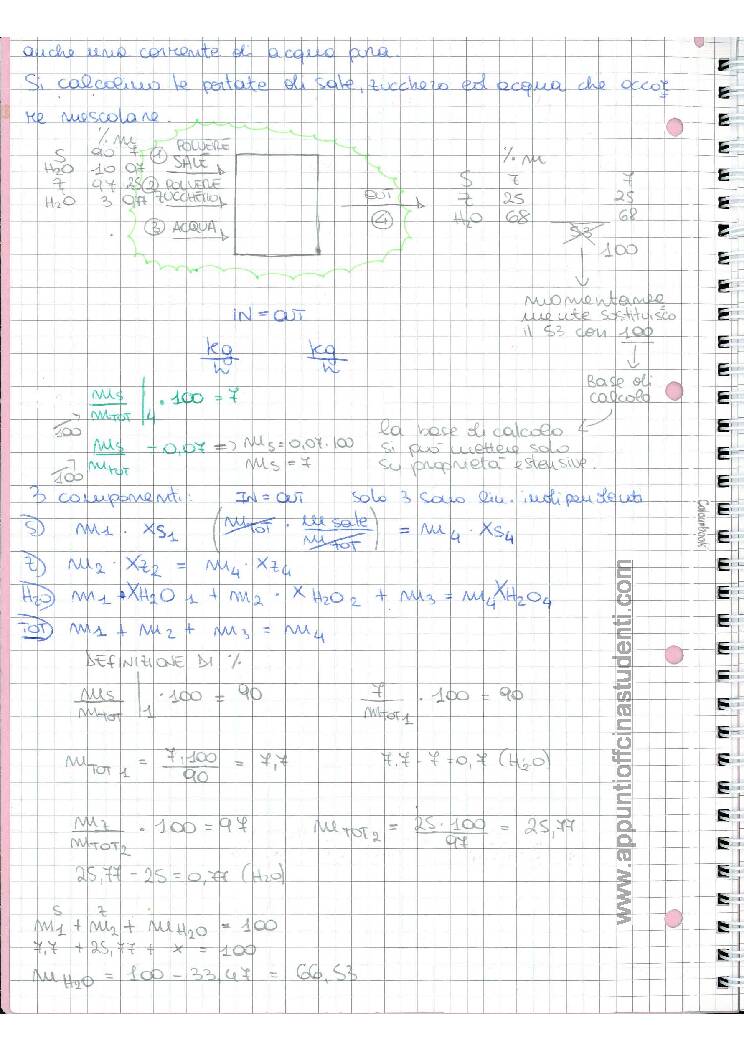 anche una corrente di acqua pura.
Si calcolino le portate di sale, zucchero ed acqua che occor
re mescolare.
% m
S 90 7
H2O 10 0,7
Z 97 25
H2O 3
① POLVERE
SALE
② POLVERE
ZUCCHERO
③ ACQUA
OUT
④
% m
S 7 7
Z 25 25
H2O 68 68
53
100
momentanea
mente sostituisco
il 53 con 100
Base di
calcolo
IN = OUT
kg/h kg/h
ms/mTOT |4 · 100 = 7
100
ms/mTOT = 0,07 => ms = 0,07·100
100
ms = 7
la base di calcolo
si può mettere solo
su proprietà estensive.
3 componenti: IN = OUT solo 3 sono lin. indipendenti
S) m1 · xS1 (mTOT · m sale/mTOT) = m4 · xS4
Z) m2 · xZ2 = m4 · xZ4
H2O) m1 · xH2O 1 + m2 · xH2O 2 + m3 = m4 xH2O4
TOT) m1 + m2 + m3 = m4
DEFINIZIONE DI %
ms/mTOT |1 · 100 = 90 7/mTOT1 · 100 = 90
mTOT 1 = 7·100/90 = 7,7 7,7 - 7 = 0,7 (H2O)
mz/mTOT2 · 100 = 97 mTOT2 = 25·100/97 = 25,77
25,77 - 25 = 0,77 (H2O)
S Z
m1 + m2 + mH2O = 100
7,7 + 25,77 + x = 100
mH2O = 100 - 33,47 = 66,53
Colourbook
www.appuntioffcinastudenti.com